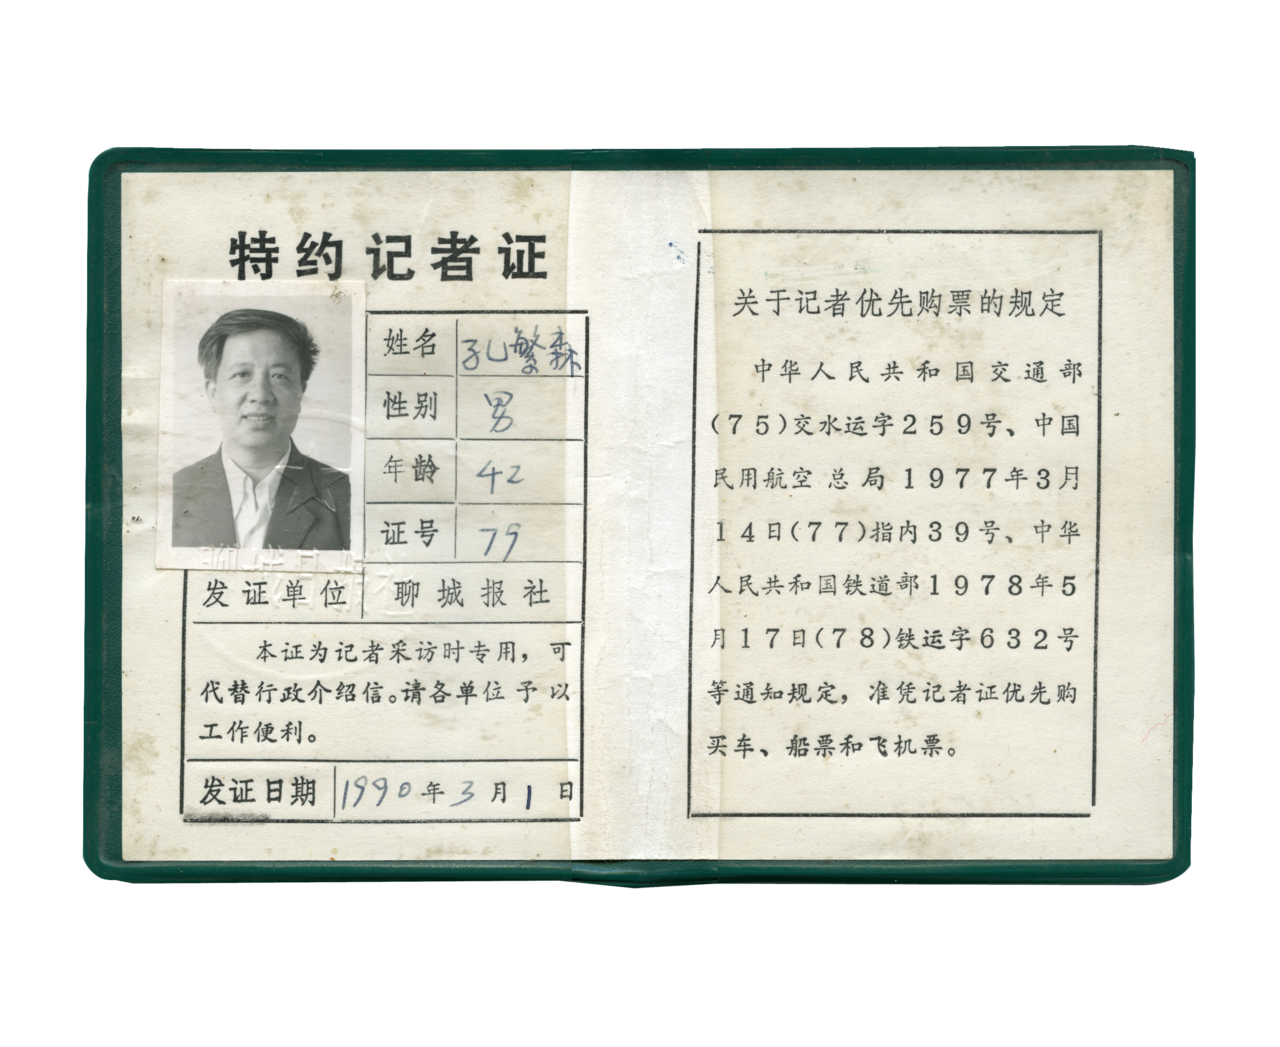 特约记者证
姓名 孔繁森
性别 男
年龄 42
证号 79
发证单位 聊城报社
本证为记者采访时专用，可
代替行政介绍信。请各单位予以
工作便利。
发证日期 1990年3月1日
关于记者优先购票的规定
中华人民共和国交通部
(75)交水运字259号、中国
民用航空总局1977年3月
14日(77)指内39号、中华
人民共和国铁道部1978年5
月17日(78)铁运字632号
等通知规定，准凭记者证优先购
买车、船票和飞机票。